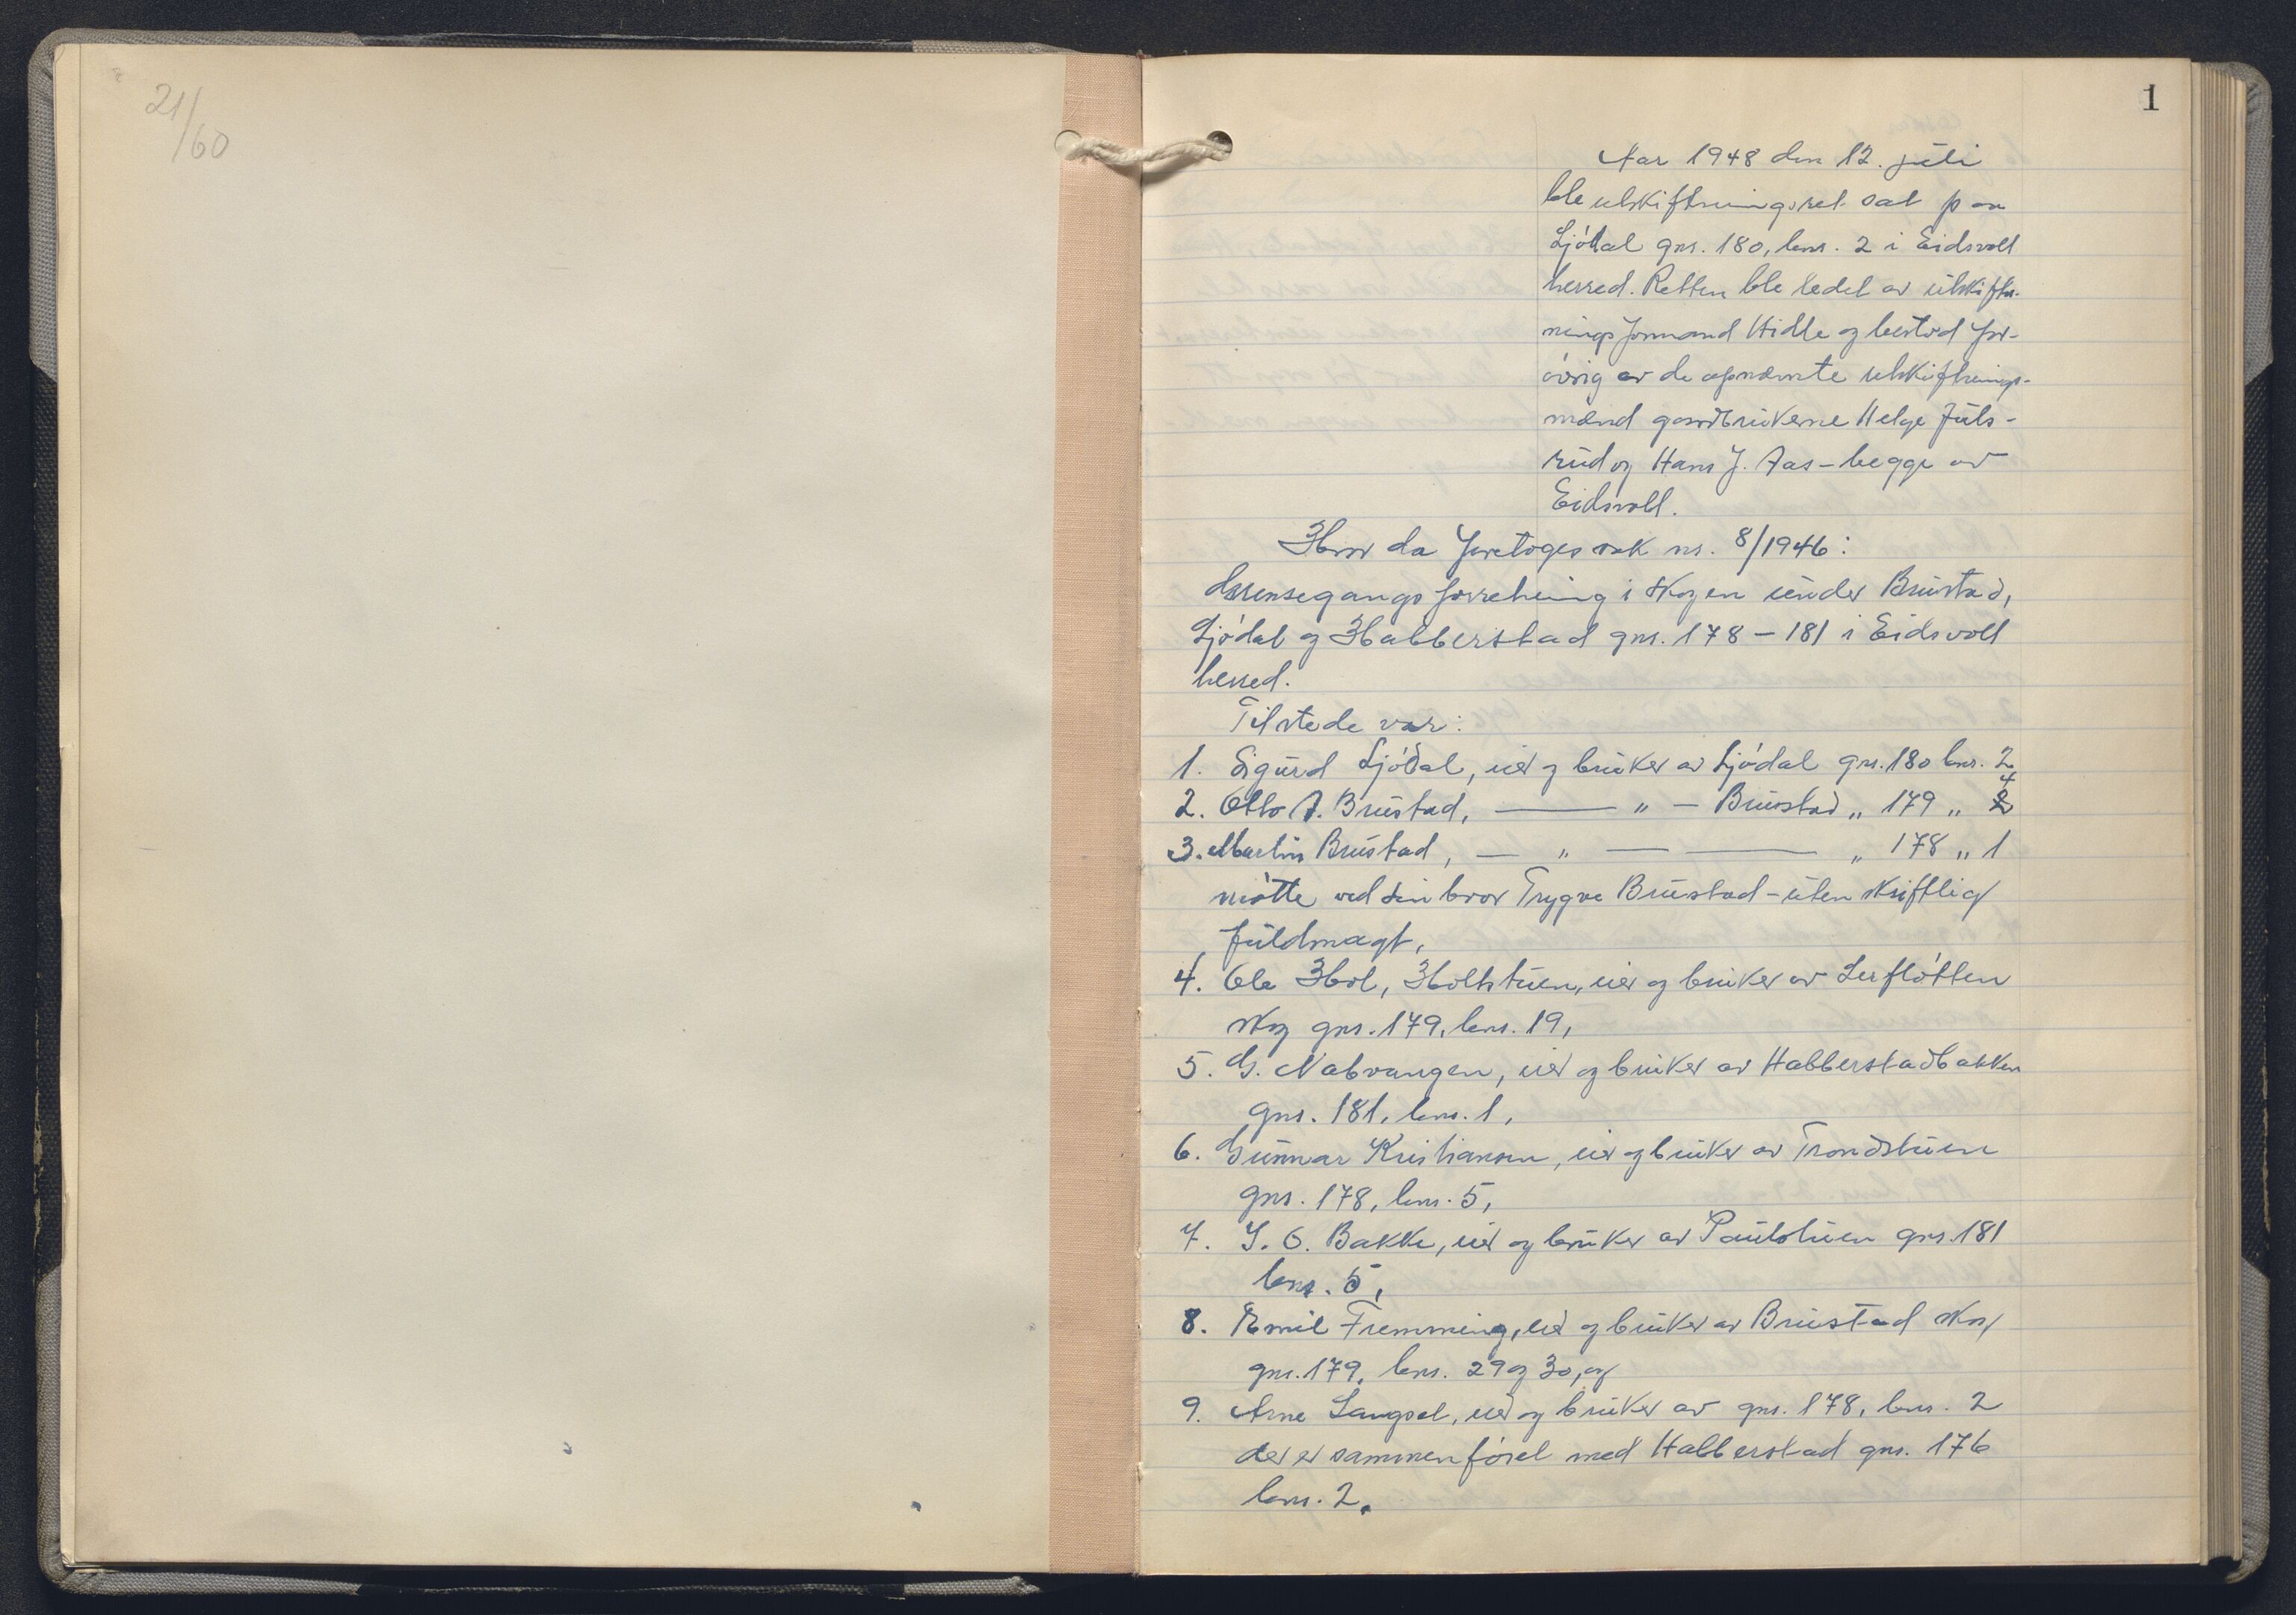 21/60
1
Aar 1948 den 12. juli
ble utskiftningsret sat paa
Ljødal gnr. 180, bnr. 2 i Eidsvoll
herred. Retten ble ledet av utskift-
ningsformand Hidle og bestod for-
øvrig av de opnævnte utskiftnings-
mænd gaardbrukerne Helge Juls-
rud og Hans J. Aas - begge av
Eidsvoll.
Hvor da foretoges sak nr. 8/1946:
Grensegangsforretning i skogen under Brustad,
Ljødal og Habberstad gnr. 178 - 181 i Eidsvoll
herred.
Tilstede var:
1. Sigurd Ljødal, eier og bruker av Ljødal gnr. 180 bnr. 2
2. Otto A. Brustad, — " — Brustad " 179 " 4
3. Martin Brustad, — " — — " 178 " 1
møtte ved sin bror Trygve Brustad - uten skriftlig
fuldmagt,
4. Ole Hol, Holtstuen, eier og bruker av Lerfløtten
skog gnr. 179, bnr. 19,
5. G. Nabvangen, eier og bruker av Habberstadbakken
gnr. 181, bnr. 1,
6. Gunnar Kristiansen, eier og bruker av Trondstuen
gnr. 178, bnr. 5,
7. J. O. Bakke, eier og bruker av Paulstuen gnr. 181
bnr. 5,
8. Emil Fremming, eier og bruker av Brustad skog
gnr. 179, bnr. 29 og 30, og
9. Arne Langset, eier og bruker av gnr. 178, bnr. 2
der er sammenføiet med Habberstad gnr. 176
bnr. 2.